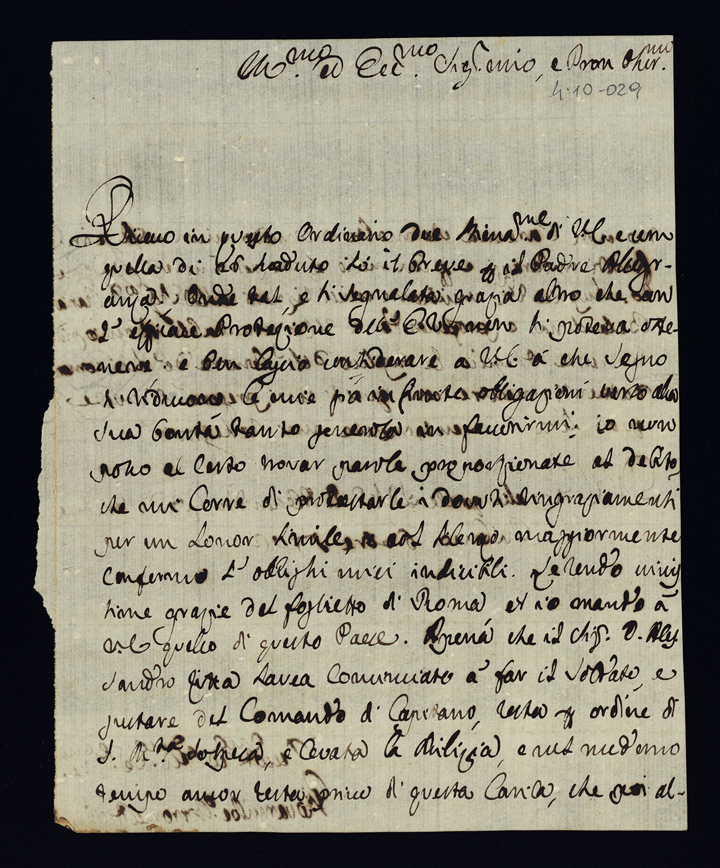 Ill.mo ed Ecc.mo Sig.r mio, e Pron Oss.mo
4-10-029
Ricevo in questo Ordinario due di V.E. e con
quella di 26 il Breve il Padre Alegr-
anza. Onde tal, e sì segnalata grazia altro che con
l' efficace Protezione dell' E.V. non si poteva otte-
nere. e ben lascio considerare a V.E. à che segno
si riducono le mie già infinite obligazioni verso alla
sua bontà tanto generosa in favorirmi; io non
posso al certo trovar parole proporzionate al debito
che mi corre di protestarle i dovuti ringraziamenti
per un honor simile, e nel stesso maggiormente
confermo l' oblighi miei indicibili. Le rendo vivis
sime grazie del foglietto di Roma, et io mando à
V.E. quello di questo Paese. Apena che il Sig. D. Ales
sandro havea cominciato à far il soldato, e
gustare del Comando di Capitano, resta ordine di
S. M.tà , e levata la Milizia, e nel medemo
tempo ancor resta privo di questa Carica, che poi al-